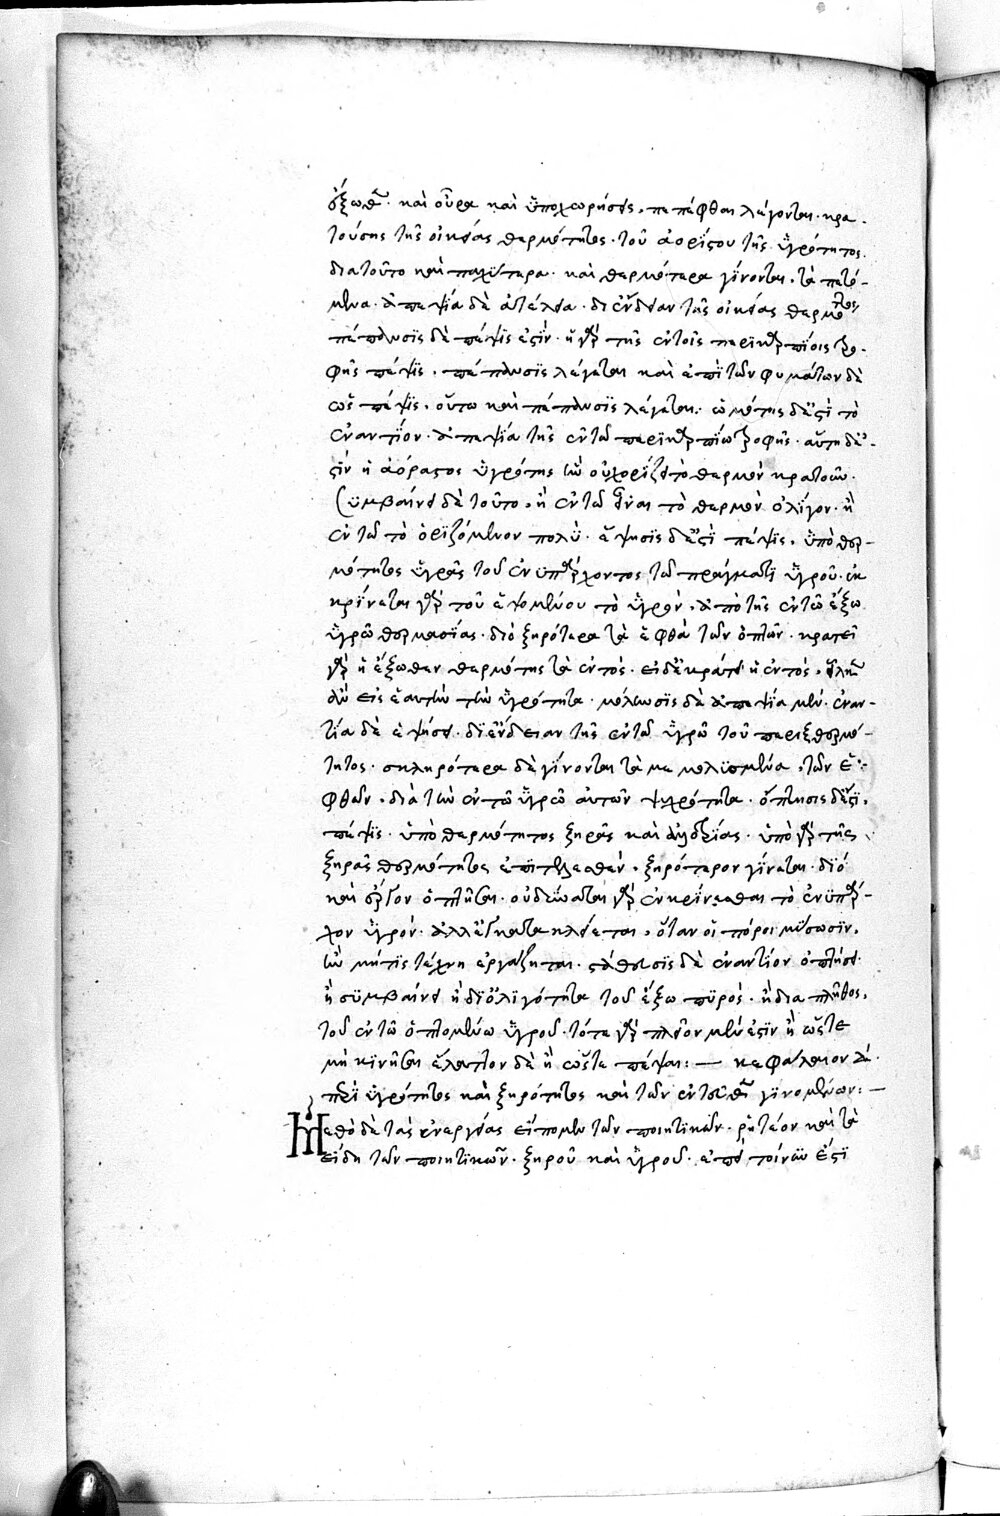 ὀξώδη. καὶ οὖρα καὶ ὑποχωρήσεις. πεπέφθαι λέγονται. κρα-
τούσης τῆς οἰκείας θερμότητος. τοῦ ἀορίστου τῆς ὑγρότητος.
διατοῦτο καὶ παχύτερα. καὶ θερμότερα γίνονται. τὰ πεττό-
μενα. ἀπεψία δὲ ἀτέλεια. δι' ἔνδειαν τῆς οἰκείας θερμότητος
πέπανσις δὲ πέψις ἐστίν. ἡ γὰρ τῆς ἐν τοῖς περικαρπίοις τρο-
φῆς πέψις. πέπανσις λέγεται καὶ ἐπὶ τῶν φυμάτων δὲ
ὡς πέψις. οὕτω καὶ πέπανσις λέγεται. ὠμότης δέ ἐστι τὸ
ἐναντίον. ἀπεψία τῆς ἐν τῶ περικαρπίω τροφῆς. αὕτη δέ ἐ-
στιν ἡ ἀόριστος ὑγρότης ἣν οὐχ ὁρίζει τὸ θερμὸν κρατοῦν.
Συμβαίνει δὲ τοῦτο. ἢ ἐν τῶ εἶναι τὸ θερμὸν ὀλίγον. ἢ
ἐν τῶ τὸ ὁριζόμενον πολύ. ἕψησις δέ ἐστι πέψις. ὑπὸ θερ-
μότητος ὑγρᾶς τοῦ ἐνυπάρχοντος τῶ πράγματι ὑγροῦ. ἐκ
κρίνεται γὰρ τοῦ ἑψομένου τὸ ὑγρὸν. ἀπὸ τῆς ἐν τῶ ἔξω
ὑγρῶ θερμασίας. διὸ ξηρότερα τὰ ἑφθὰ τῶν ὀπτῶν. κρατεῖ
γὰρ ἡ ἔξωθεν θερμότης τὰ ἐντός. εἰ δὲ κρατεῖ ἡ ἐντός.
ἂν εἰς ἑαυτὴν τὴν ὑγρότητα. μόλυνσις δὲ ἀπεψία μὲν. ἐναν-
τία δὲ ἑψήσει. δι' ἔνδειαν τῆς ἐν τῶ ὑγρῶ τοῦ πέριξ θερμό-
τητος. σκληρότερα δὲ γίνονται τὰ μεμολυσμένα. τῶν ἑ-
φθῶν. διὰ τὴν ἐν τῶ ὑγρῶ αὐτῶν ψυχρότητα. ὄπτησις δέ ἐστι.
πέψις. ὑπὸ θερμότητος ξηρᾶς καὶ ἀλλοτρίας. ὑπὸ γὰρ τῆς
ξηρᾶς θερμότητος ἐπιτελεσθὲν. ξηρότερον γίνεται. διὸ
καὶ ὀπτᾶται. οὐ δύναται γὰρ ἐκκρίνεσθαι τὸ ἐνυπάρ-
χον ὑγρόν. ἀλλ' ἐγκατακλείεται. ὅταν οἱ πόροι μύσωσιν.
ἢν μήτις τέχνη ἐργάζηται. στάθευσις δὲ ἐναντίον ὀπτήσει.
ἣ συμβαίνει ἢ δι' ὀλιγότητα τοῦ ἔξω πυρός. ἢ διὰ πλῆθος.
τοῦ ἐν τῶ ὀπτομένω ὑγροῦ. τότε γὰρ πλεῖον μέν ἐστιν ἢ ὥστε
μὴ κινῆσαι ἔλαττον δὲ ἢ ὥστε πέψαι: — κεφάλαιον
περὶ ὑγρότητος καὶ ξηρότητος καὶ τῶν ἐντεῦθεν γινομένων: —
Μεθὸ δὲ τὰς ἐνεργείας εἴπομεν τῶν ποιητικῶν. ῥητέον καὶ τὰ
εἴδη τῶν ποιητικῶν. ξηροῦ καὶ ὑγροῦ. ἐπεὶ τοίνυν ἐστὶ